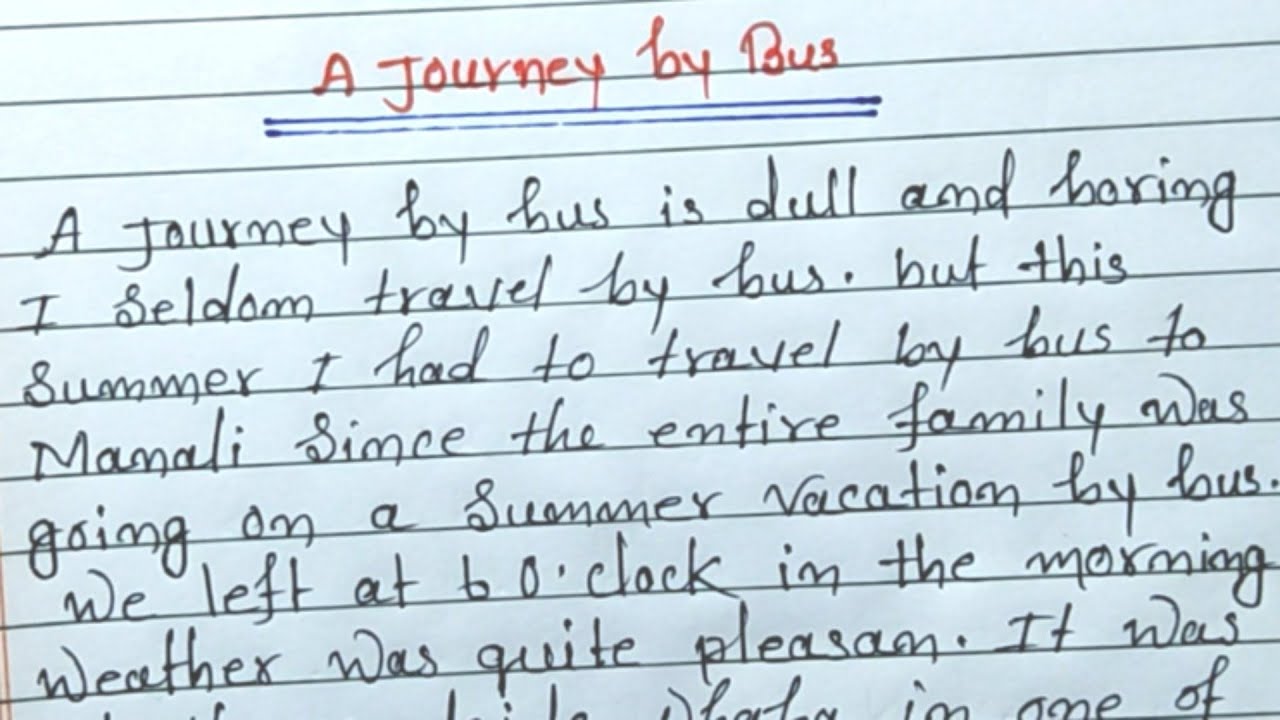 A Journey by Bus
A Journey by bus is dull and boring
I Seldom travel by bus. but this
Summer I had to travel by bus to
Manali Since the entire family was
going on a Summer vacation by bus.
We left at 6 O'clock in the morning
Weather was quite pleasan. It was
in one of